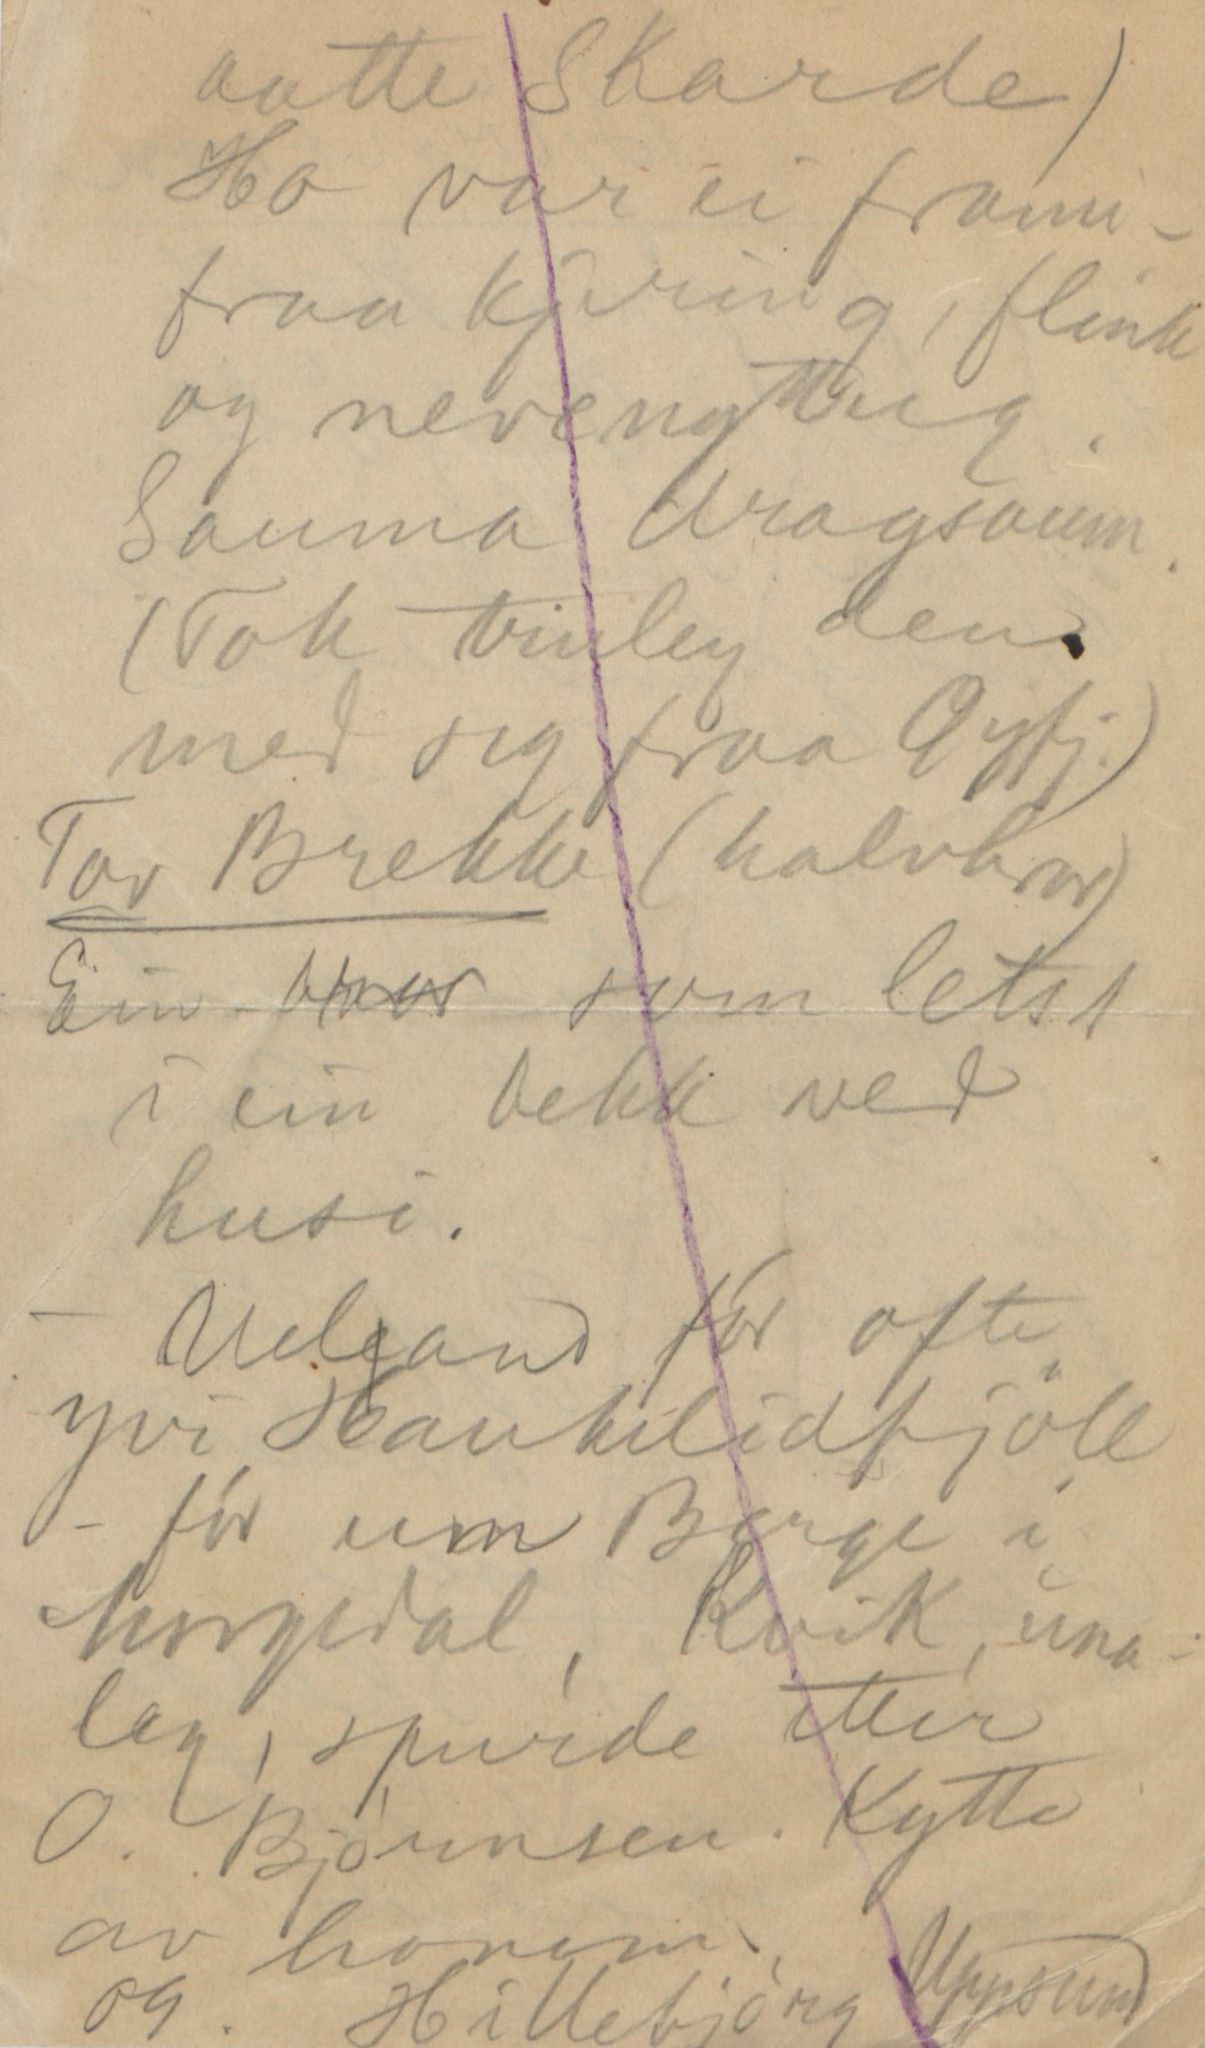 aatte Skarde)
Ho var ei frami-
fraa kjæring, flink
og nevenyttug.
Sauma dragsaum.
(Tok truleg den
med seg fraa Øyfj.)
Tor Brekke (halvbror)
Ein som letst
i ein bekk ved
husi.
- Uelgand fór ofte
yvi Haukelidfjöll
- fór um Berge i
Morgedal, Kvik, una-
leg, spurde etter
O. Bjørnsen. Kytte
av honom.
og. Hillebjørg Uppsund